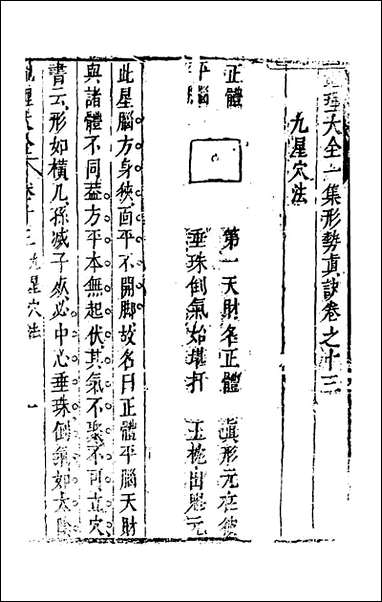 地理大全一集形勢眞訣卷之十三
九星穴法
正體
平腦
第一天財名正體 眞形元在彼
垂珠倒氣始堪扦 玉枕出
此星腦方身狹面平不開脚故名曰正體平腦天財
與諸體不同葢方平本無起伏其氣不聚不可立穴
書云形如橫几孫滅子死必中心垂珠倒氣如太陰
地理大全 卷十三 九星穴法 一